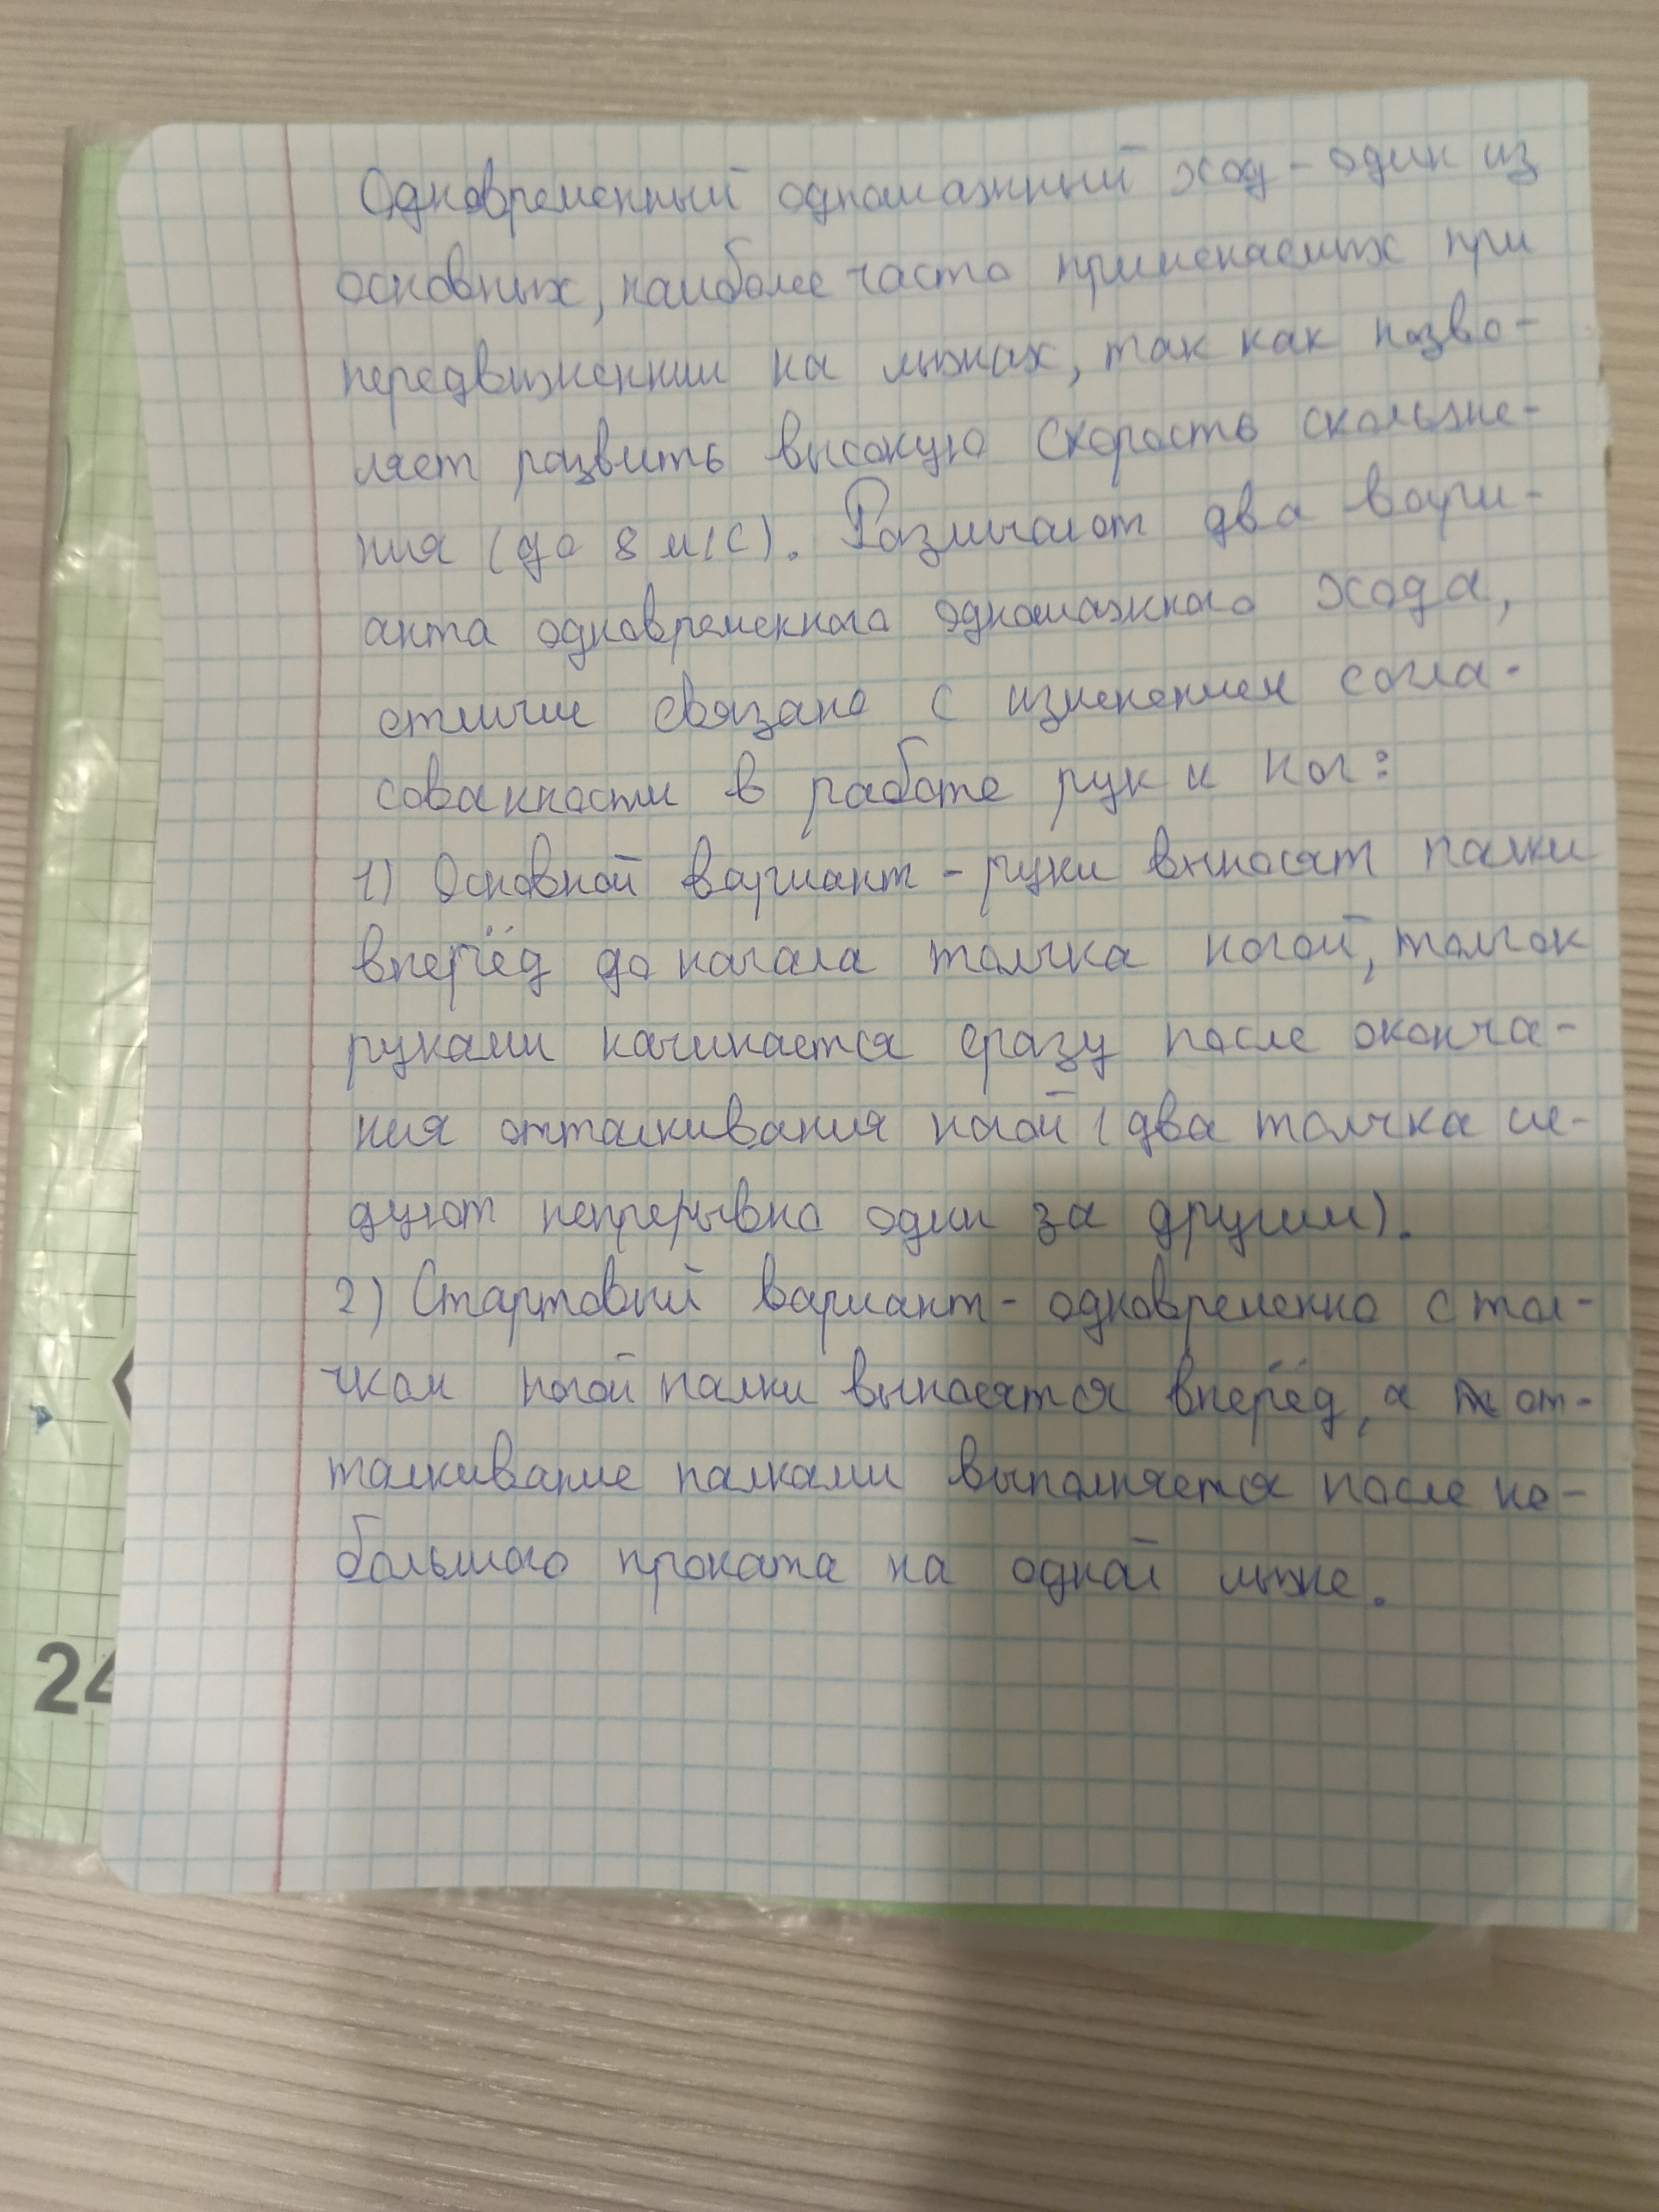 Одновременный одношажный ход - один из
основных, наиболее часто применяемых при
передвижении на лыжах, так как позво-
ляет развить высокую скорость скольже-
ния (до 8 м/с). Различают два вари-
анта одновременного одношажного хода,
отличие связано с изменением согла-
сованности в работе рук и ног:
1) Основной вариант - руки выносят палки
вперёд до начала толчка ногой, толчок
руками начинается сразу после оконча-
ния отталкивания ногой (два толчка сле-
дуют непрерывно один за другим).
2) Стартовый вариант - одновременно с тол-
чком ногой палки выносятся вперёд, а от-
талкивание палками выполняется после не-
большого проката на одной лыже.
24